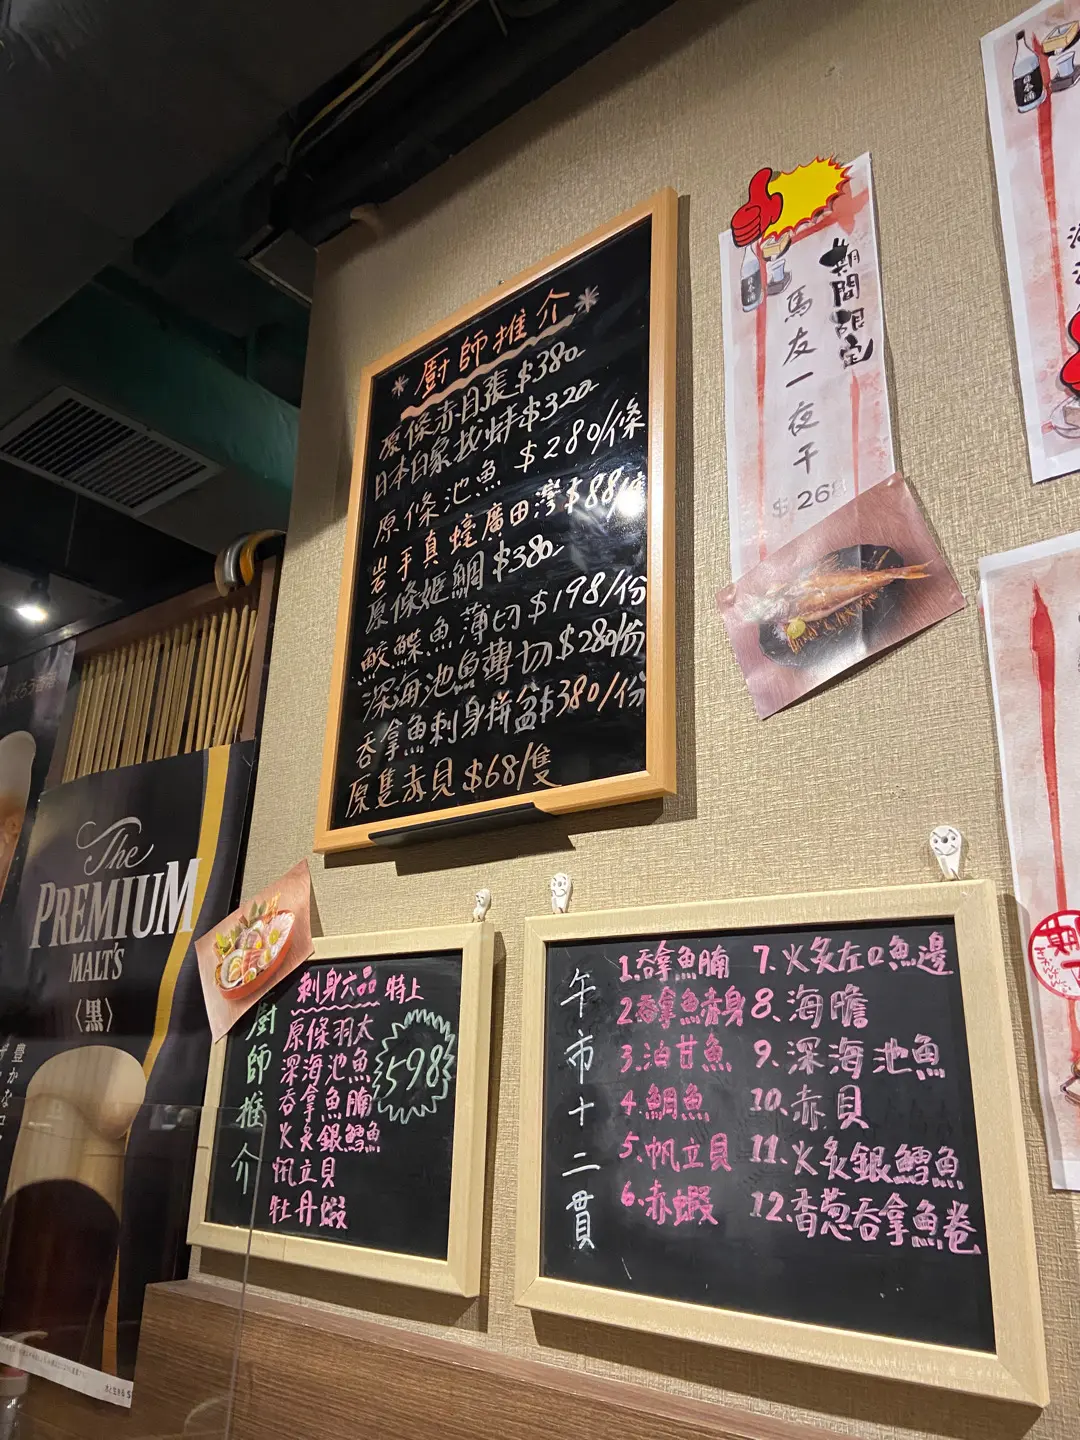 *廚師推介*
原條赤目張$380-
日本白象拔蚌$320-
原條池魚 $280/條
岩手真蠔廣田灣$88/
原條姫鯛$380-
鮫鰈魚薄切$198/份
深海池魚薄切$280/份
吞拿魚刺身拼盆$380/份
原隻赤貝$68/隻
期間限定
馬友一夜干
$268
日本酒
The
PREMIUM
MALT'S
〈黒〉
廚師推介
刺身六品 特上
原條羽太
深海池魚
吞拿魚腩
火炙銀鱈魚
帆立貝
牡丹蝦
$598
午市十二貫
1.吞拿魚腩
2.吞拿魚赤身
3.油甘魚
4.鯛魚
5.帆立貝
6.赤蝦
7.火炙左口魚邊
8.海膽
9.深海池魚
10.赤貝
11.火炙銀鱈魚
12.香葱吞拿魚卷
日本酒